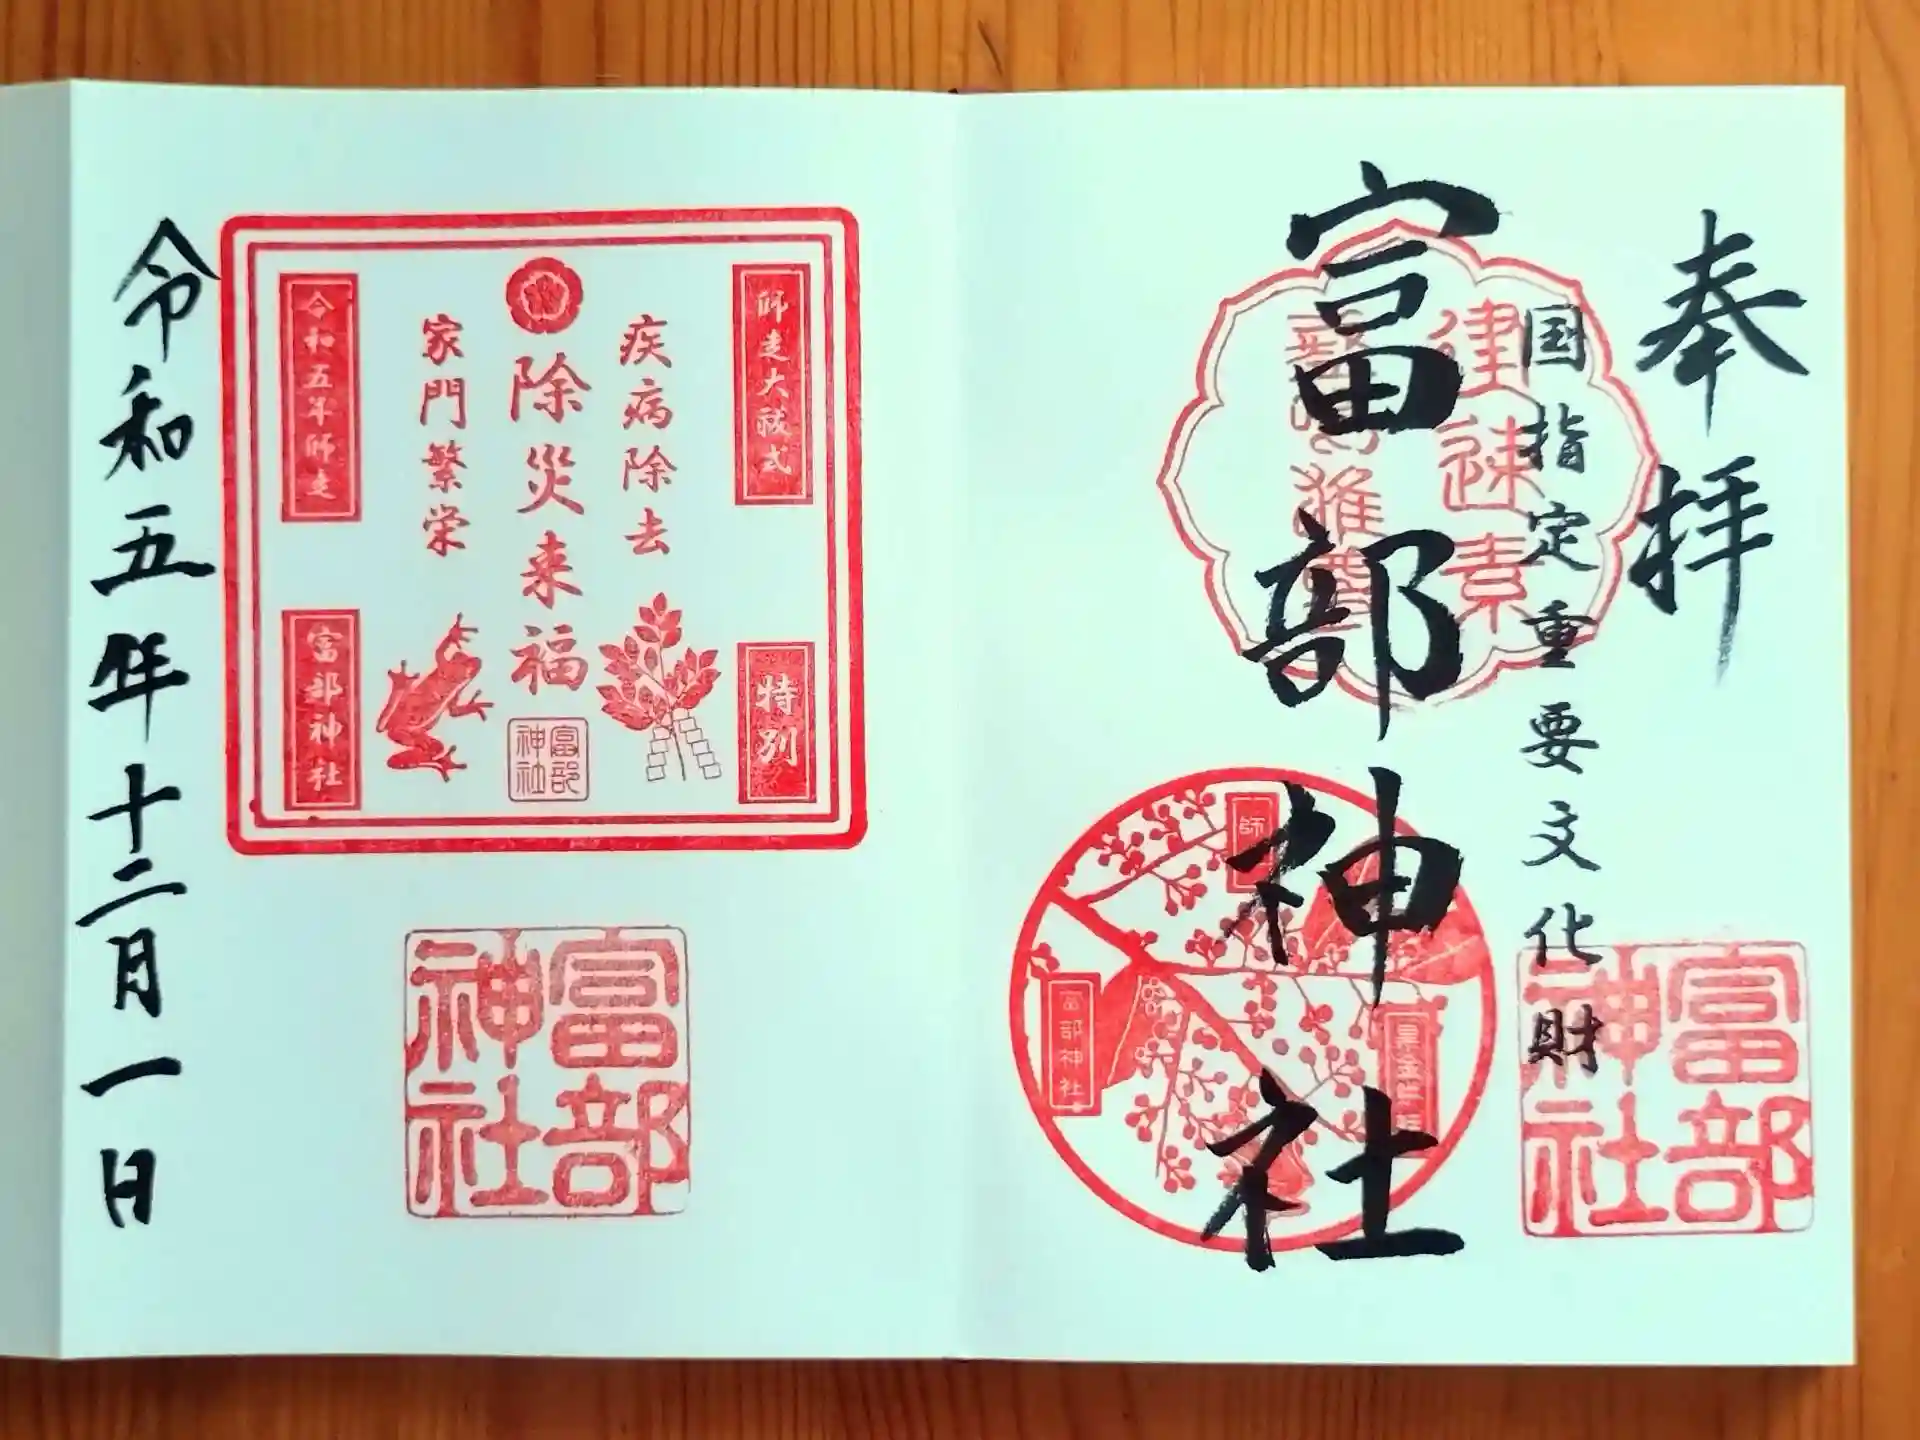 奉拝
国指定重要文化財
富部神社
建速素
富部神社
師
富部神社
富部神社
師走大祓式
特別
疾病除去
除災来福
家門繁栄
富部神社
令和五年師走
富部神社
富部神社
令和五年十二月一日